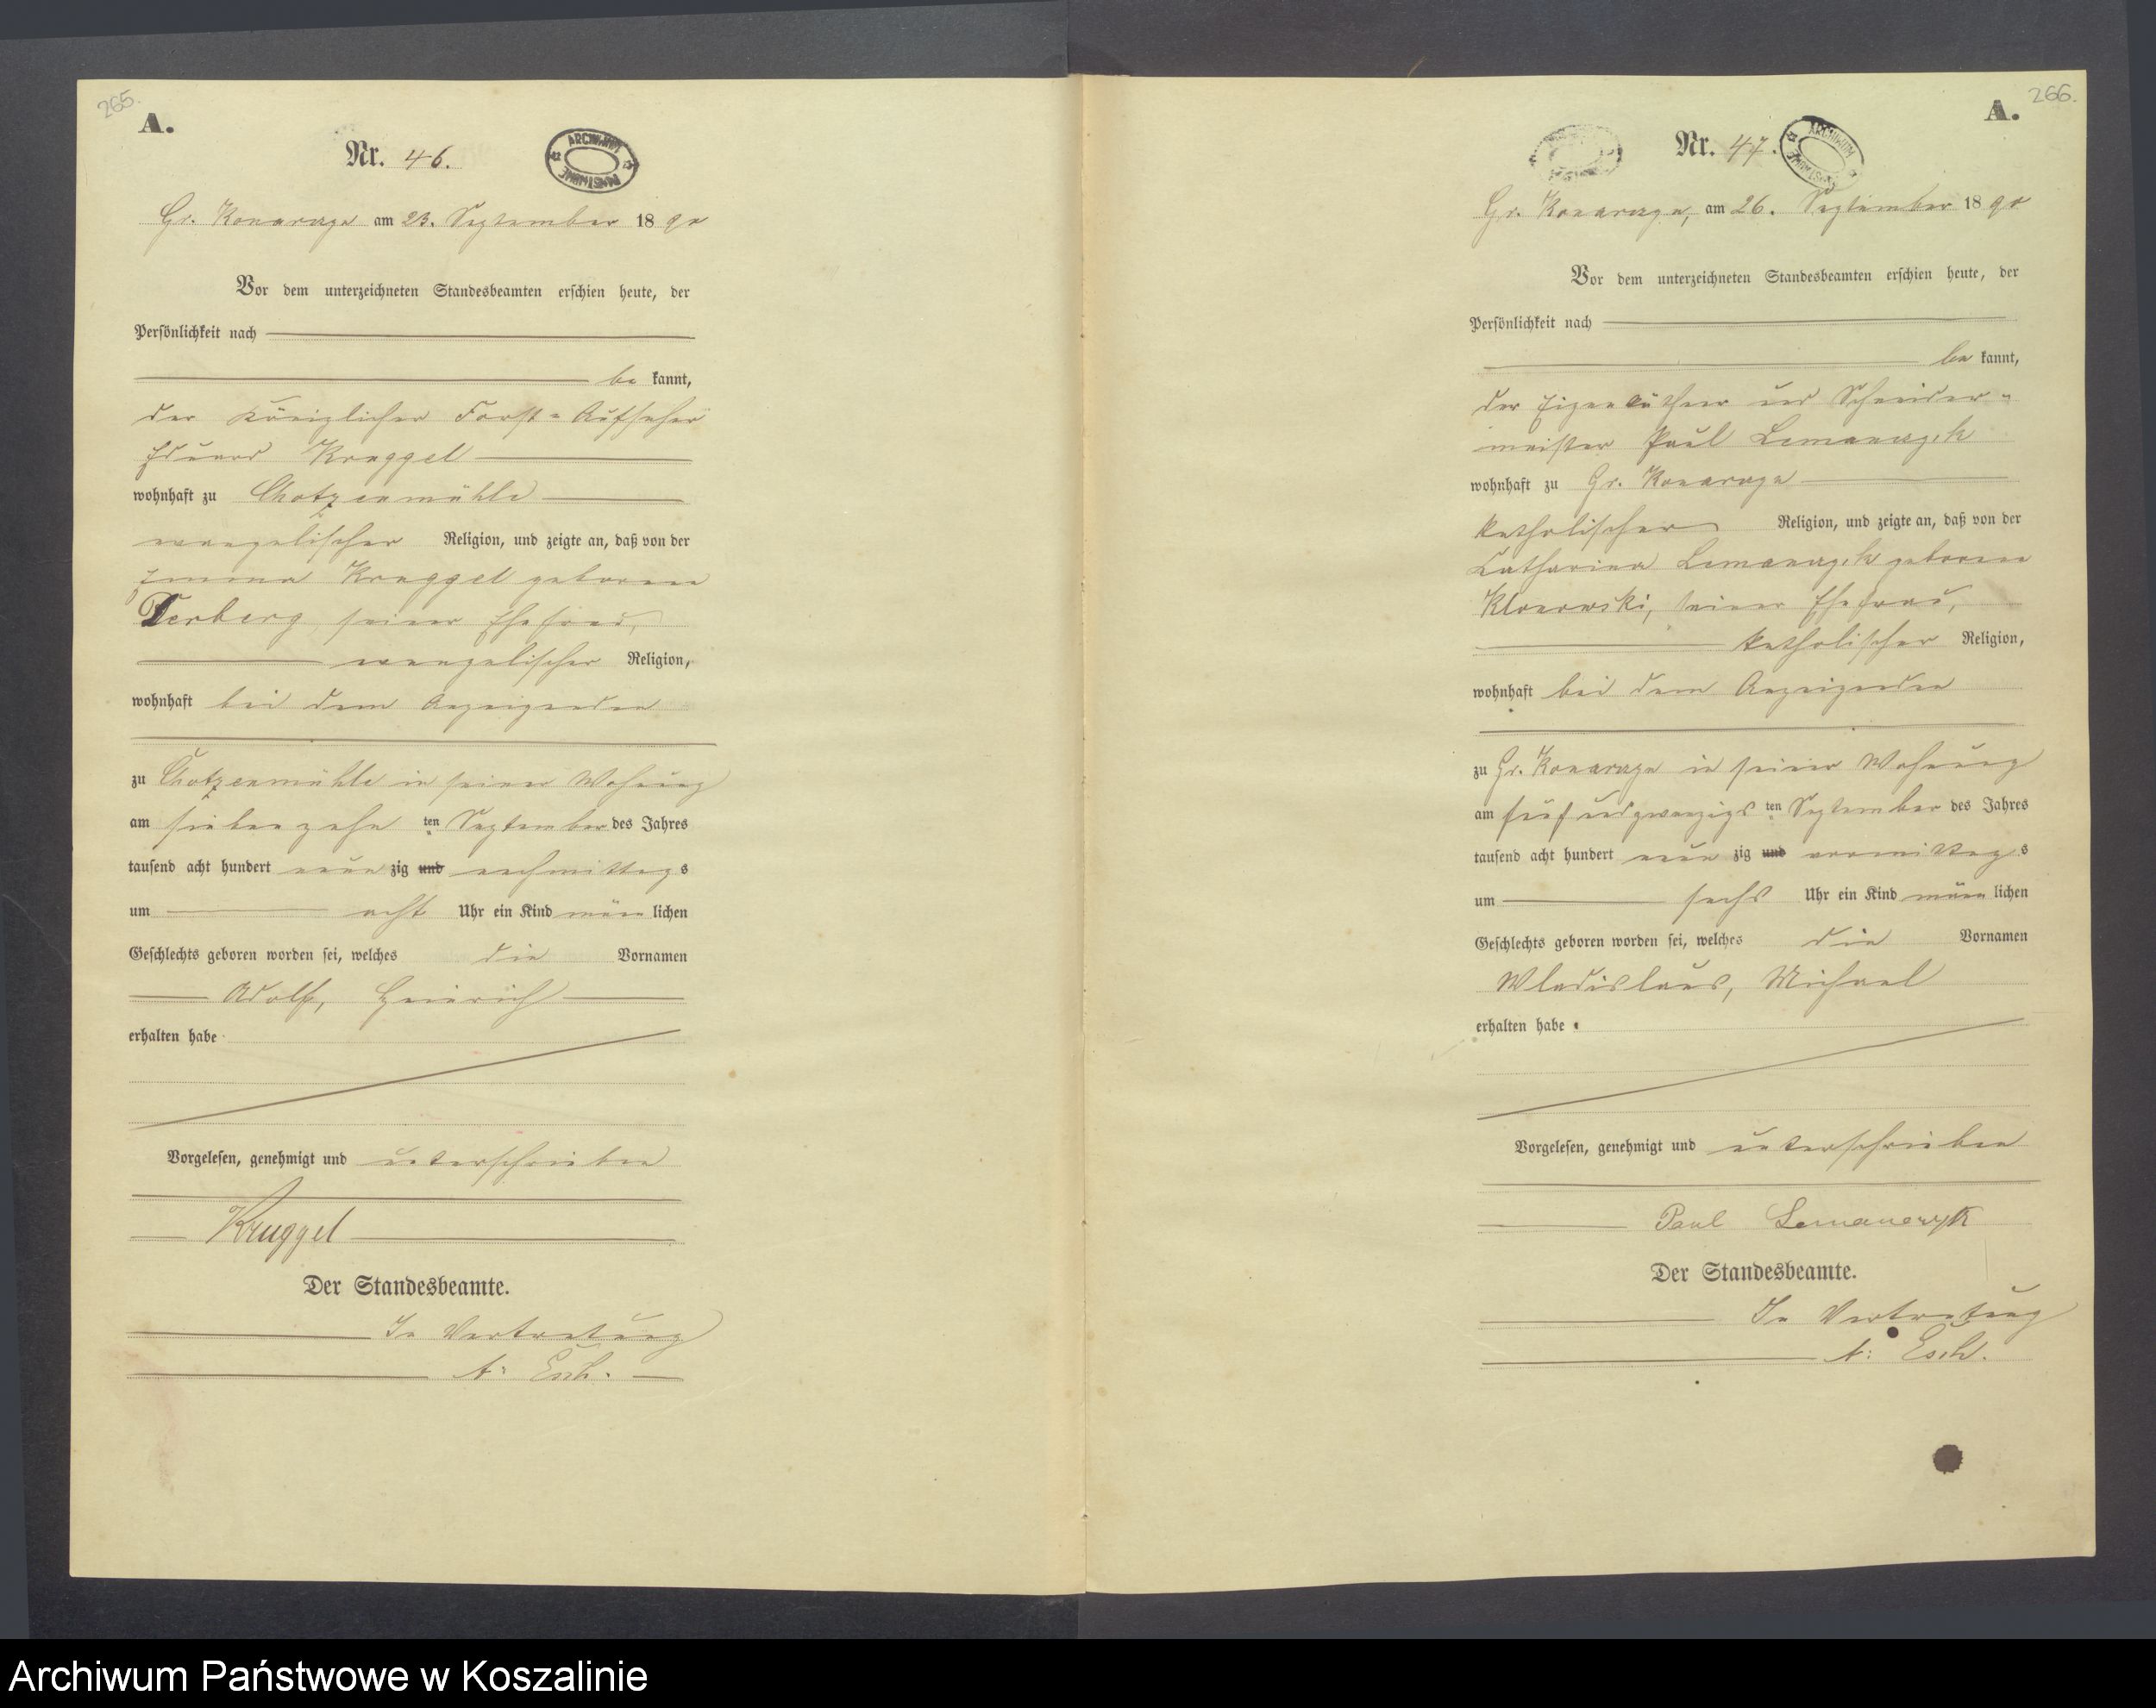 265.
A.
Nr. 46.
ARCHIWUM PAŃSTWOWE
Gr. Konarczyn am 23. September 1890
Vor dem unterzeichneten Standesbeamten erschien heute, der
Persönlichkeit nach
be kannt,
der Königlicher Forst-Aufseher
Eduard Kruggel
wohnhaft zu Chotzenmühle
evangelischer Religion, und zeigte an, daß von der
Emma Kruggel geborene
Terberg seiner Ehefrau,
evangelischer Religion,
wohnhaft bei dem Anzeigenden
zu Chotzenmühle in seiner Wohnung
am siebenzehn ten September des Jahres
tausend acht hundert neun zig und nachmittags
um acht Uhr ein Kind männ lichen
Geschlechts geboren worden sei, welches die Vornamen
Adolf, Heinrich
erhalten habe
Vorgelesen, genehmigt und unterschrieben
Kruggel
Der Standesbeamte.
In Vertretung
A: Esch.
266.
A.
Nr. 47.
ARCHIWUM PAŃSTWOWE
Gr. Konarczyn, am 26. September 1890
Vor dem unterzeichneten Standesbeamten erschien heute, der
Persönlichkeit nach
be kannt,
der Eigenkäthner und Schneider-
meister Paul Lemanczyk
wohnhaft zu Gr. Konarczyn
katholischer Religion, und zeigte an, daß von der
Catharina Lemanczyk geborene
Klonowski, seiner Ehefrau,
katholischer Religion,
wohnhaft bei dem Anzeigenden
zu Gr. Konarczyn in seiner Wohnung
am fünfundzwanzigs ten September des Jahres
tausend acht hundert neun zig und vormittags
um sechs Uhr ein Kind männ lichen
Geschlechts geboren worden sei, welches die Vornamen
Wladislaus, Michael
erhalten habe.
Vorgelesen, genehmigt und unterschrieben
Paul Lemanczyk
Der Standesbeamte.
In Vertretung
A: Esch.
Archiwum Państwowe w Koszalinie